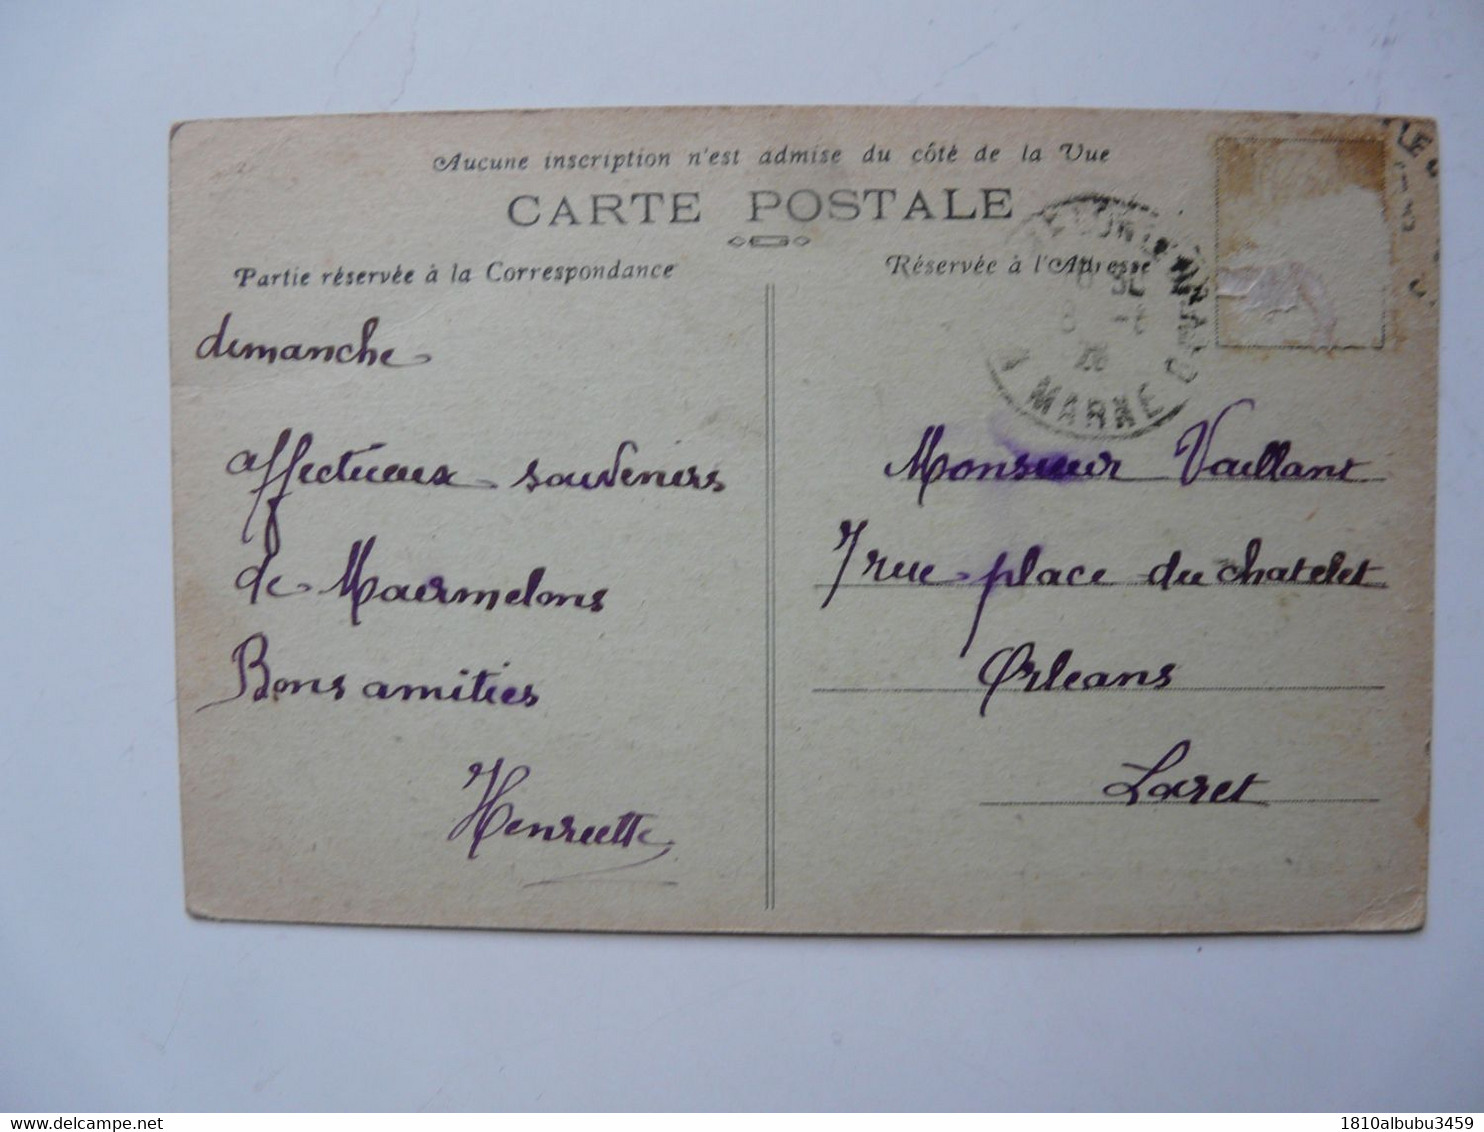 Aucune inscription n'est admise du côté de la Vue
CARTE POSTALE
Partie réservée à la Correspondance
Réservée à l'Adresse
MARNE
dimanche
affectueux souvenirs
de Maurmelons
Bons amitiés
Henriette
Monsieur Vaillant
7 rue place du chatelet
Orleans
Loret
delcampe.net
1810albubu3459